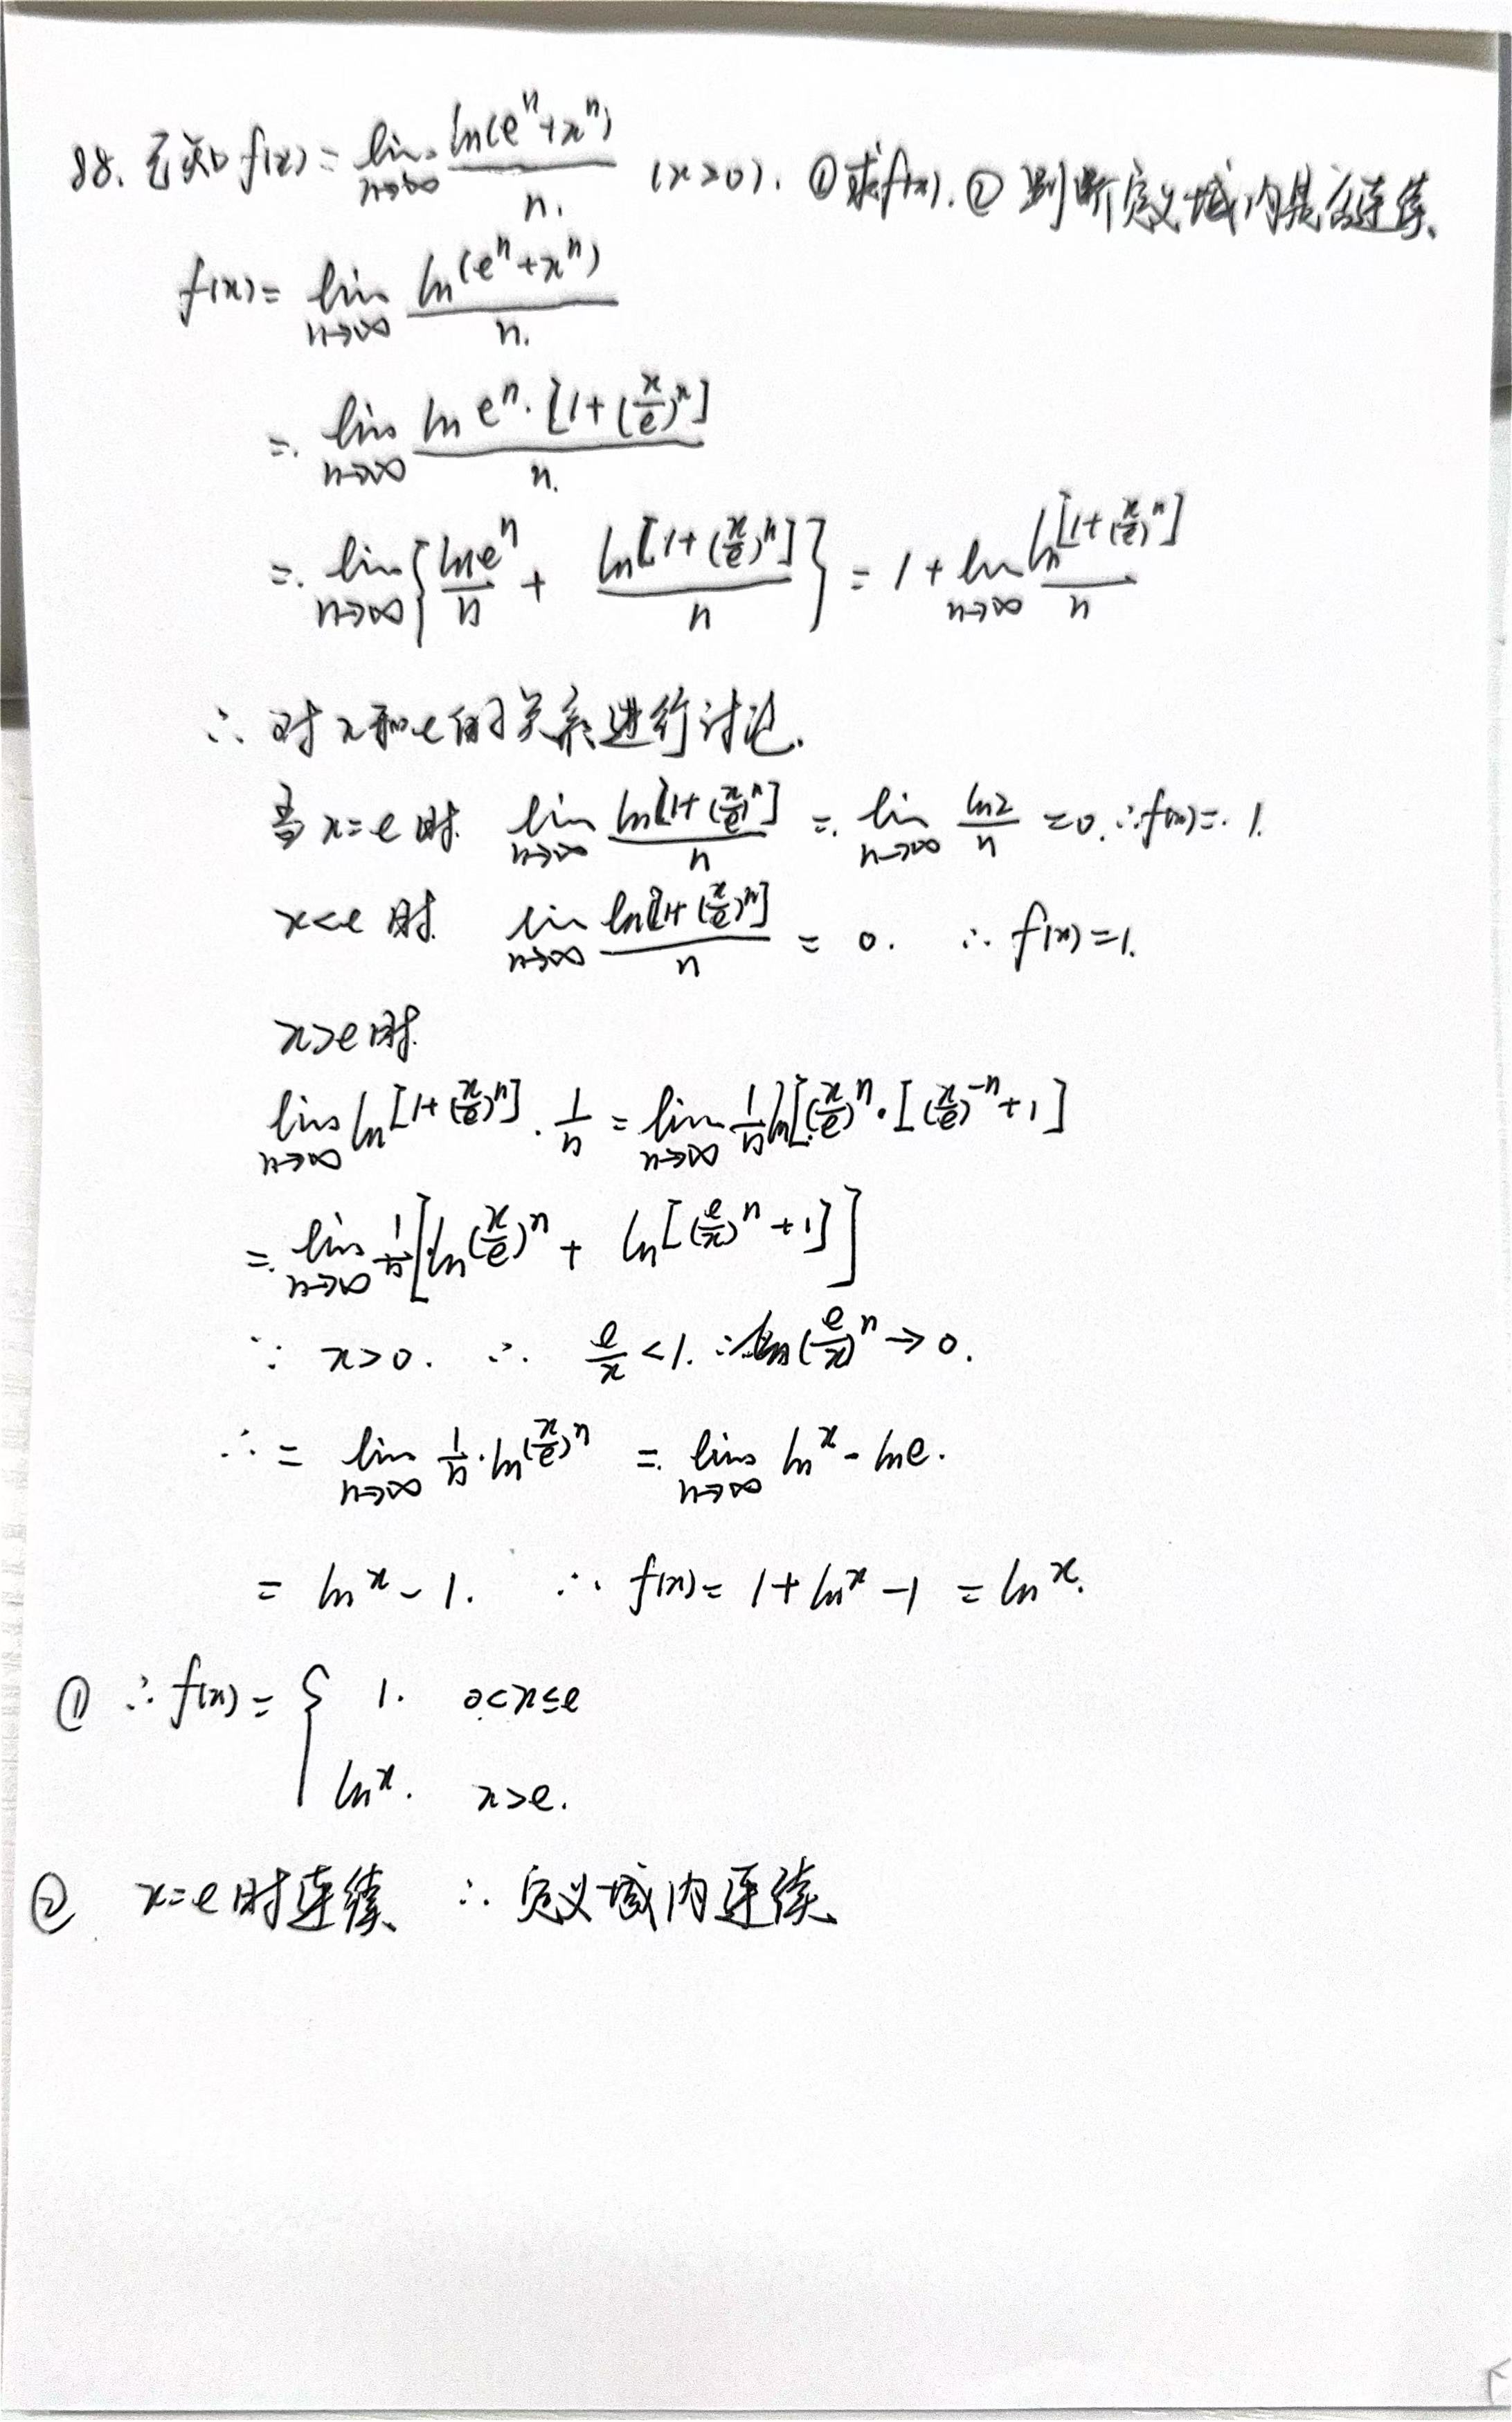 88. 已知 f(x) = lim n→∞ ln(eⁿ+xⁿ)/n. (x>0). ①求f(x). ② 判断定义域内是否连续、
f(x) = lim n→∞ ln(eⁿ+xⁿ)/n.
= lim n→∞ ln eⁿ·[1+(x/e)ⁿ]/n.
= lim n→∞ {ln eⁿ/n + ln[1+(x/e)ⁿ]/n} = 1 + lim n→∞ ln[1+(x/e)ⁿ]/n
∴ 对x和e的关系进行讨论.
当 x=e 时. lim n→∞ ln[1+(x/e)ⁿ]/n = lim n→∞ ln2/n =0. ∴f(x)= 1.
x<e 时. lim n→∞ ln[1+(x/e)ⁿ]/n = 0. ∴ f(x)=1.
x>e 时.
lim n→∞ ln[1+(x/e)ⁿ]·1/n = lim n→∞ 1/n ln[(x/e)ⁿ·[(x/e)⁻ⁿ+1]
= lim n→∞ 1/n [ln(x/e)ⁿ + ln[(e/x)ⁿ+1]]
∵ x>0. ∴ e/x<1. ∴ (e/x)ⁿ→0.
∴ = lim n→∞ 1/n·ln(x/e)ⁿ = lim n→∞ ln x - ln e.
= ln x - 1. ∴ f(x)= 1+ln x -1 = ln x.
① ∴ f(x)= { 1. 0<x≤e
ln x. x>e.
② x=e时连续、 ∴ 定义域内连续、